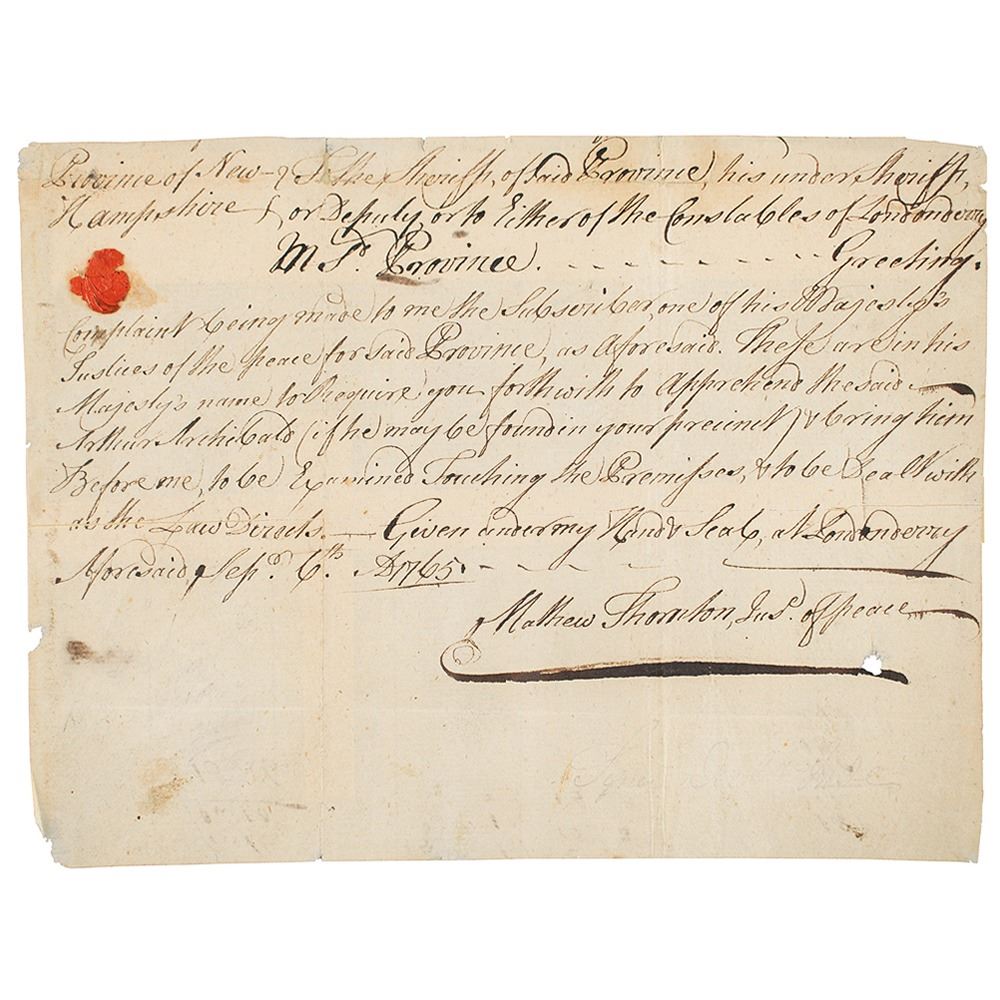 Province of New- } To the Sheriff, of said Province, his under Sheriff,
Hampshire } or Deputy, or to Either of the Constables of Londonderry
In Sd. Province. - - - - - - - - - - Greeting.
Complaint being made to me the Subscriber, one of his Majesty's
Justices of the Peace for said Province, as Aforesaid. These are in his
Majesty's name to Require you forthwith to Apprehend the said
Arthur Archibald (if he may be found in your precinct) & bring him
Before me, to be Examined Touching the Premisses, & to be Dealt with
as the Law Directs. — Given under my Hand & Seal, at Londonderry
Aforesaid, Sepr. 6th. AD 1765. - - - -
Mathew Thornton, Jus. of peace